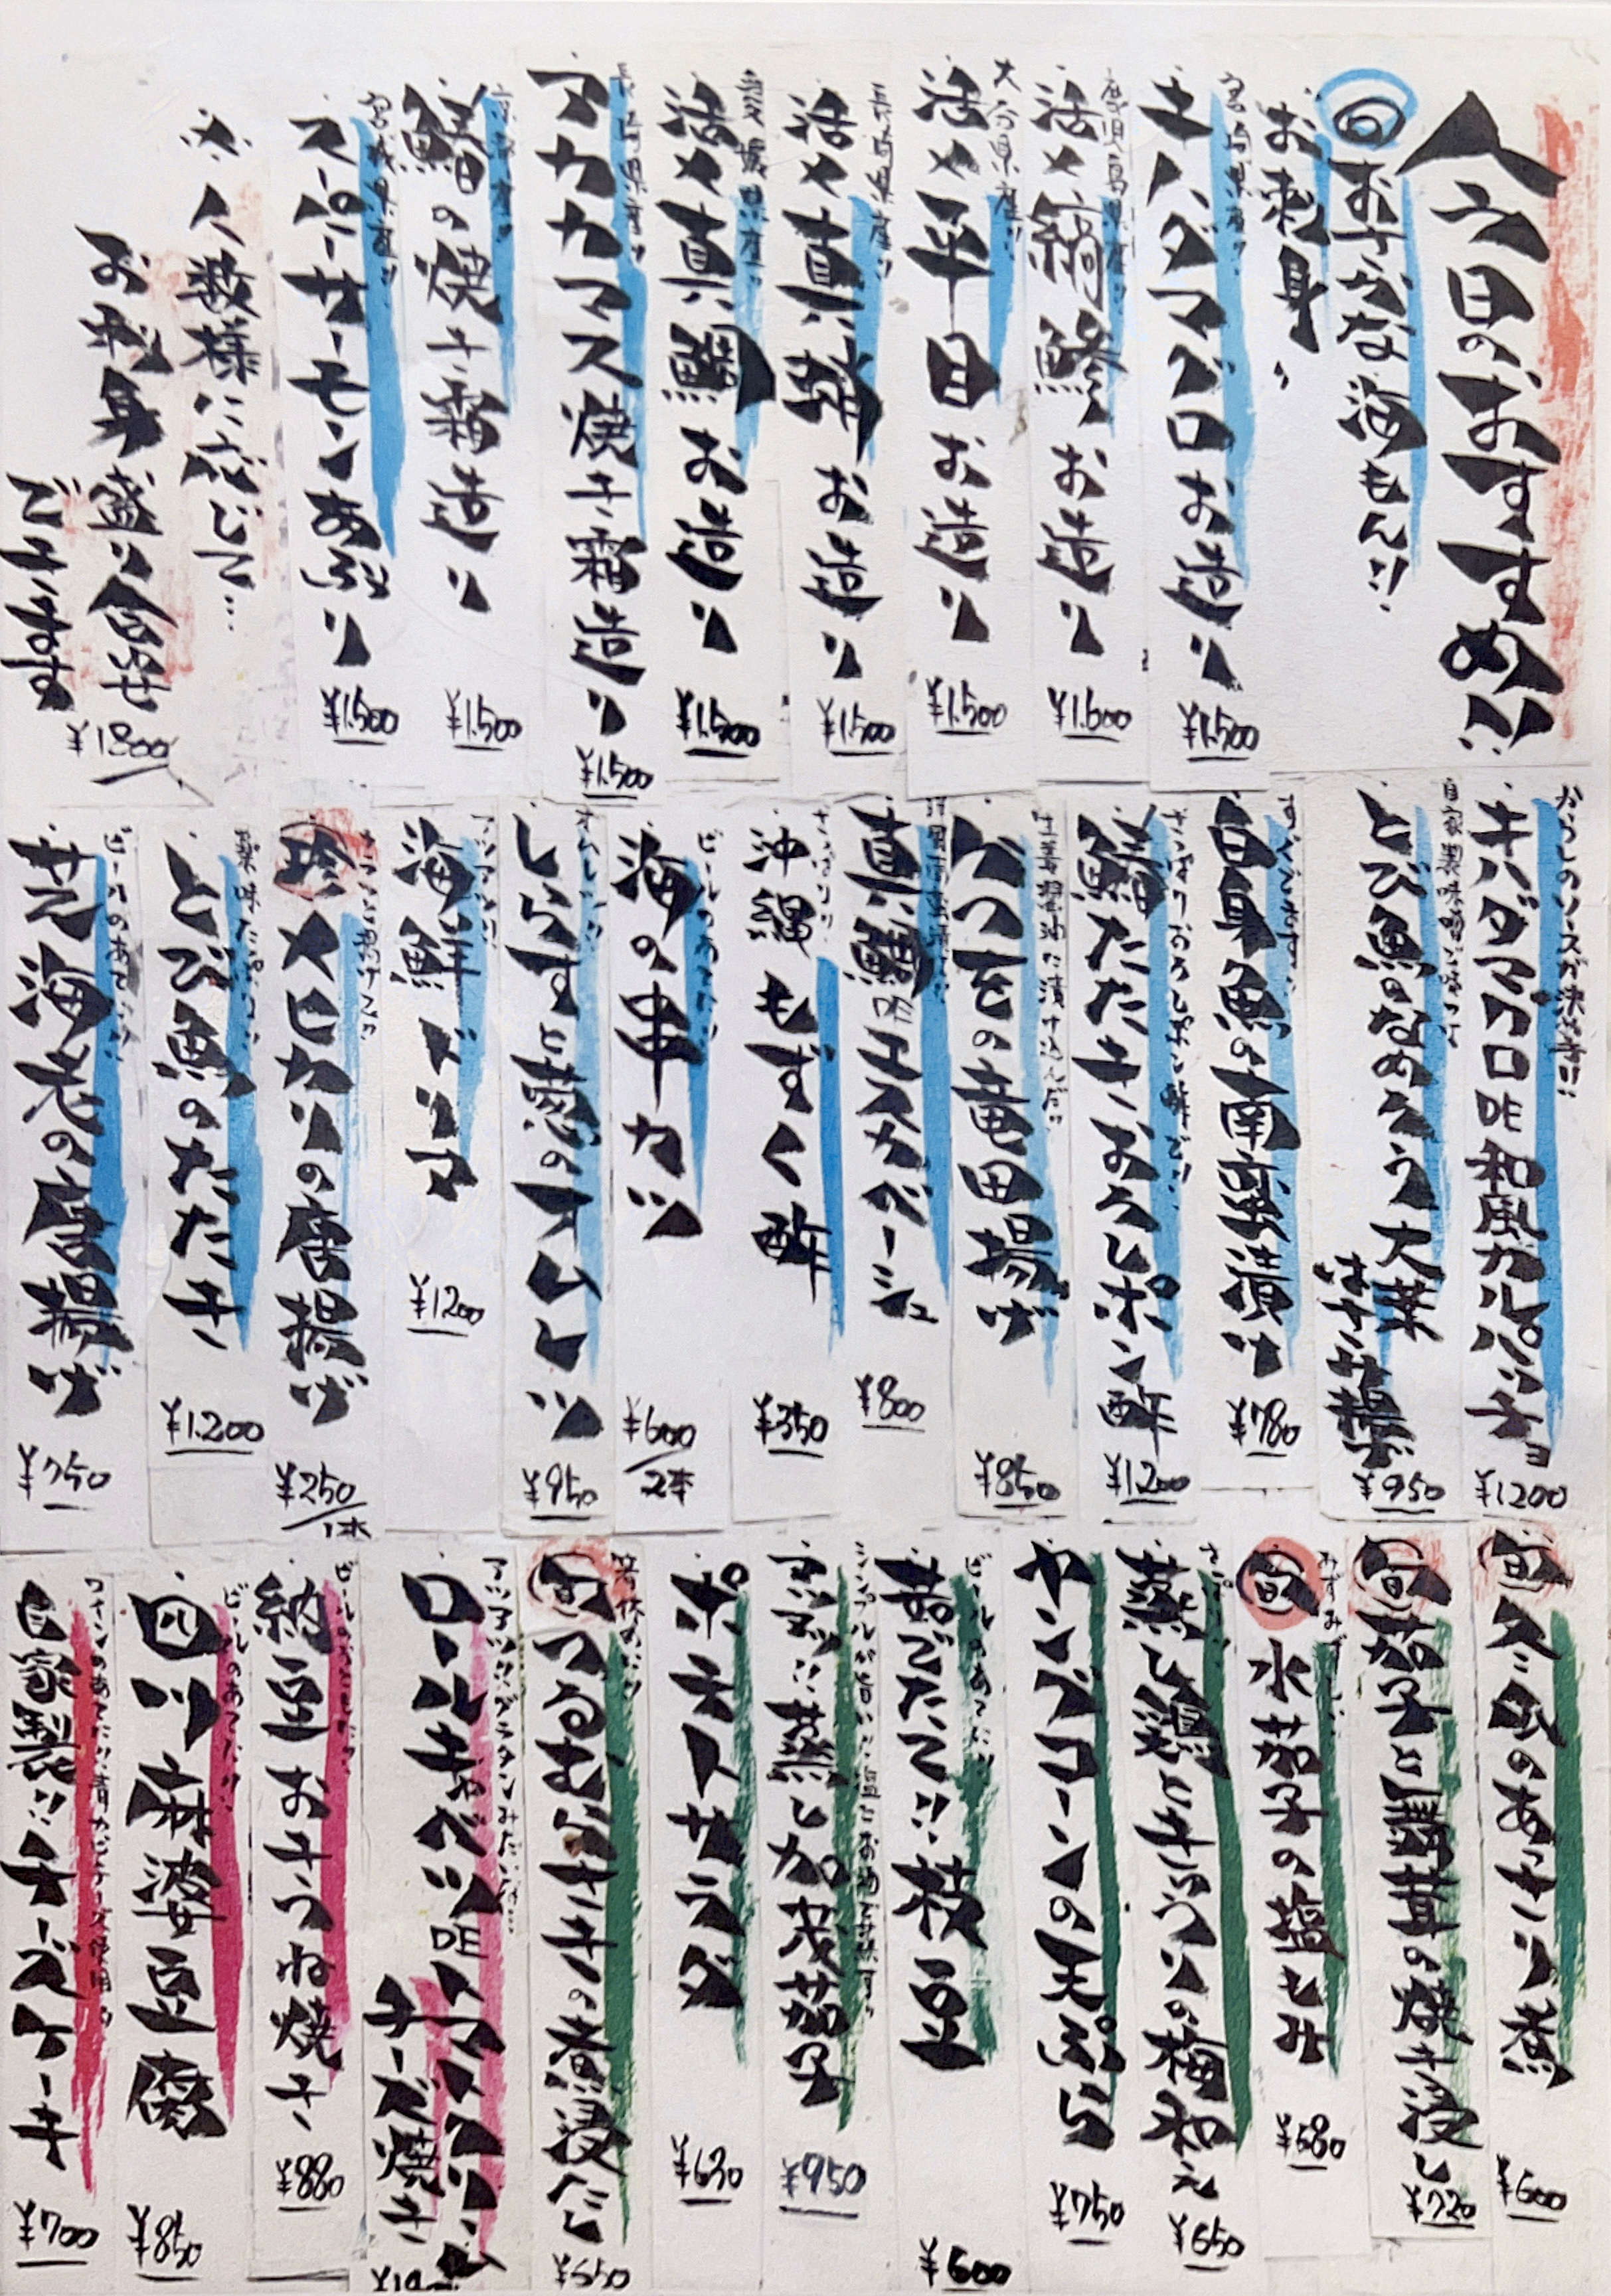 八六日のおすすめ!!
旬 おすすめな海もん!!
お刺身、
宮崎県産!!
キハダマグロお造り
¥1.500
鹿児島県産!!
活〆縞鯵お造り
¥1.600
大分県産!!
活〆平目お造り
¥1.500
長崎県産!!
活〆真鯵お造り
¥1.500
愛媛県産!!
活〆真鯛お造り
¥1.500
長崎県産!!
アカカマス焼き霜造り
¥1.500
京都産!!
鰆の焼き霜造り
¥1.500
宮城県産!!
スーパーサーモンあぶり
¥1.500
〆 人数様に応じて…
お刺身盛り合せ
できます
¥1800
キハダマグロDE和風カルパッチョ
¥1200
自家製味噌
とび魚のなめろう大葉
はさみ揚げ
¥950
白身魚の南蛮漬け
¥780
さっぱりおろしポン酢で!!
鰆たたきおろしポン酢
¥1200
生姜醤油に漬け込んだ!!
がつをの竜田揚げ
¥850
真鯛DEエスカベーシュ
¥800
さっぱり!!
沖縄もずく酢
¥350
ビールのあてに!!
海の串カツ
¥600/2本
しらすと葱のオムレツ
¥950
アツアツ!!
海鮮ドリア
¥1200
珍 メヒカリの唐揚げ
¥250/1本
薬味たっぷり!!
とび魚のたたき
¥1.200
ビールのあてに!!
芝海老の唐揚げ
¥750
旬 冬瓜のあっさり煮
¥600
旬 茄子と舞茸の焼き浸し
¥720
みずみずしい!!
旬 水茄子の塩もみ
¥580
さっぱり!!
蒸し鶏ときゅうりの梅和え
¥650
ヤングコーンの天ぷら
¥750
ビールのあてに!!
茹でたて!!枝豆
¥600
アツアツ!!蒸し加茂茄子
¥950
ポテトサラダ
¥630
箸休めに!!
旬 つるむらさきの煮浸し
¥550
アツアツ!!グラタンみたいな!!…
ロールキャベツDEトマトクリーム
チーズ焼き
ビールのおともに!!
納豆おきつね焼き
¥880
ビールのあてに!!
四川麻婆豆腐
¥850
ワインのあてに!!青カビチーズ使用!!
自家製!!チーズケーキ
¥700